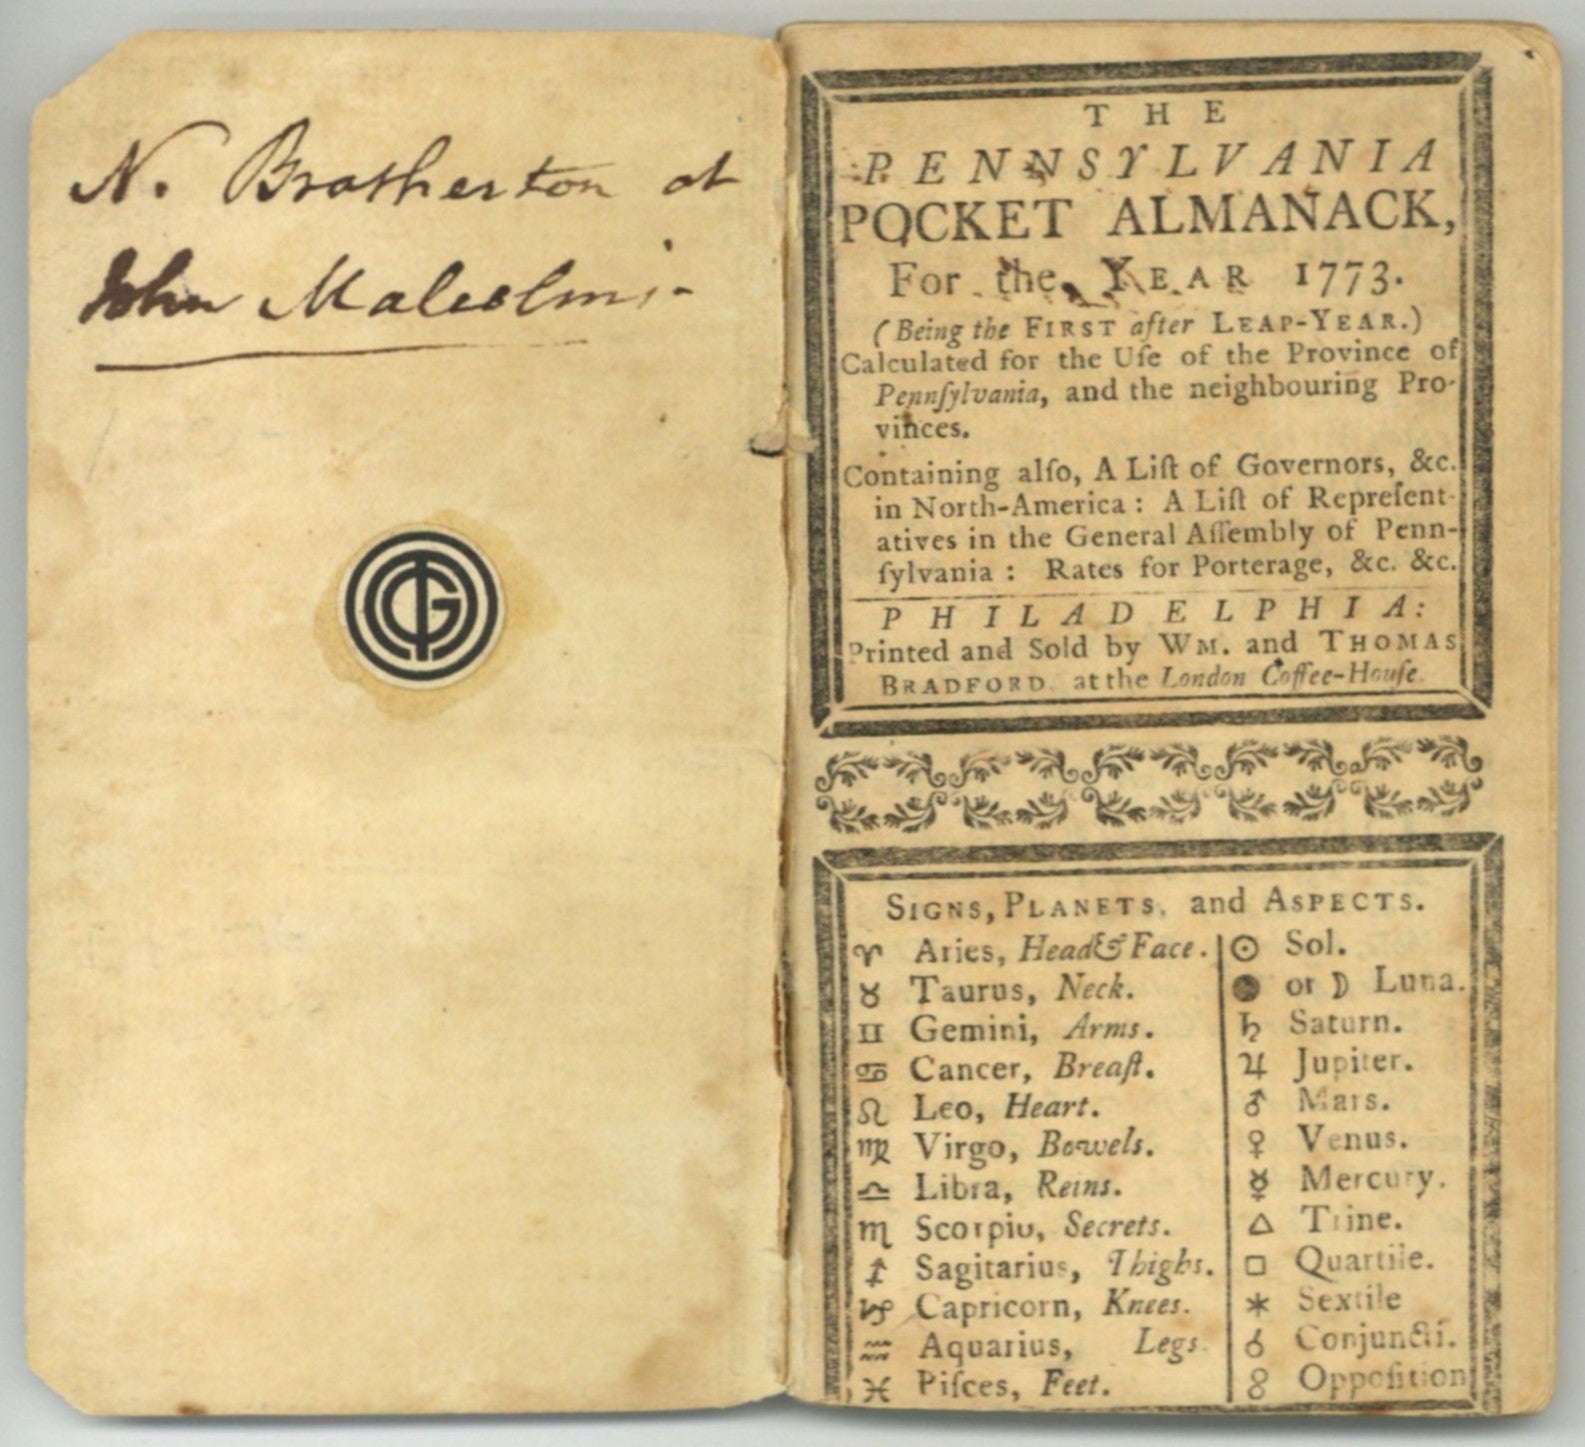 N. Bratherton at
John Malcolms
CTG
THE
PENNSYLVANIA
POCKET ALMANACK,
For the YEAR 1773.
(Being the FIRST after LEAP-YEAR.)
Calculated for the Uſe of the Province of
Pennſylvania, and the neighbouring Pro-
vinces.
Containing alſo, A Liſt of Governors, &c.
in North-America: A Liſt of Repreſent-
atives in the General Aſſembly of Penn-
ſylvania: Rates for Porterage, &c. &c.
PHILADELPHIA:
Printed and Sold by WM. and THOMAS
BRADFORD at the London Coffee-Houſe.
SIGNS, PLANETS, and ASPECTS.
♈ Aries, Head & Face.
♉ Taurus, Neck.
♊ Gemini, Arms.
♋ Cancer, Breaſt.
♌ Leo, Heart.
♍ Virgo, Bowels.
♎ Libra, Reins.
♏ Scorpio, Secrets.
♐ Sagitarius, Thighs.
♑ Capricorn, Knees.
♒ Aquarius, Legs.
♓ Piſces, Feet.
☉ Sol.
● or ☽ Luna.
♄ Saturn.
♃ Jupiter.
♂ Mars.
♀ Venus.
☿ Mercury.
△ Trine.
□ Quartile.
⚹ Sextile
☌ Conjuncti.
☍ Oppoſition